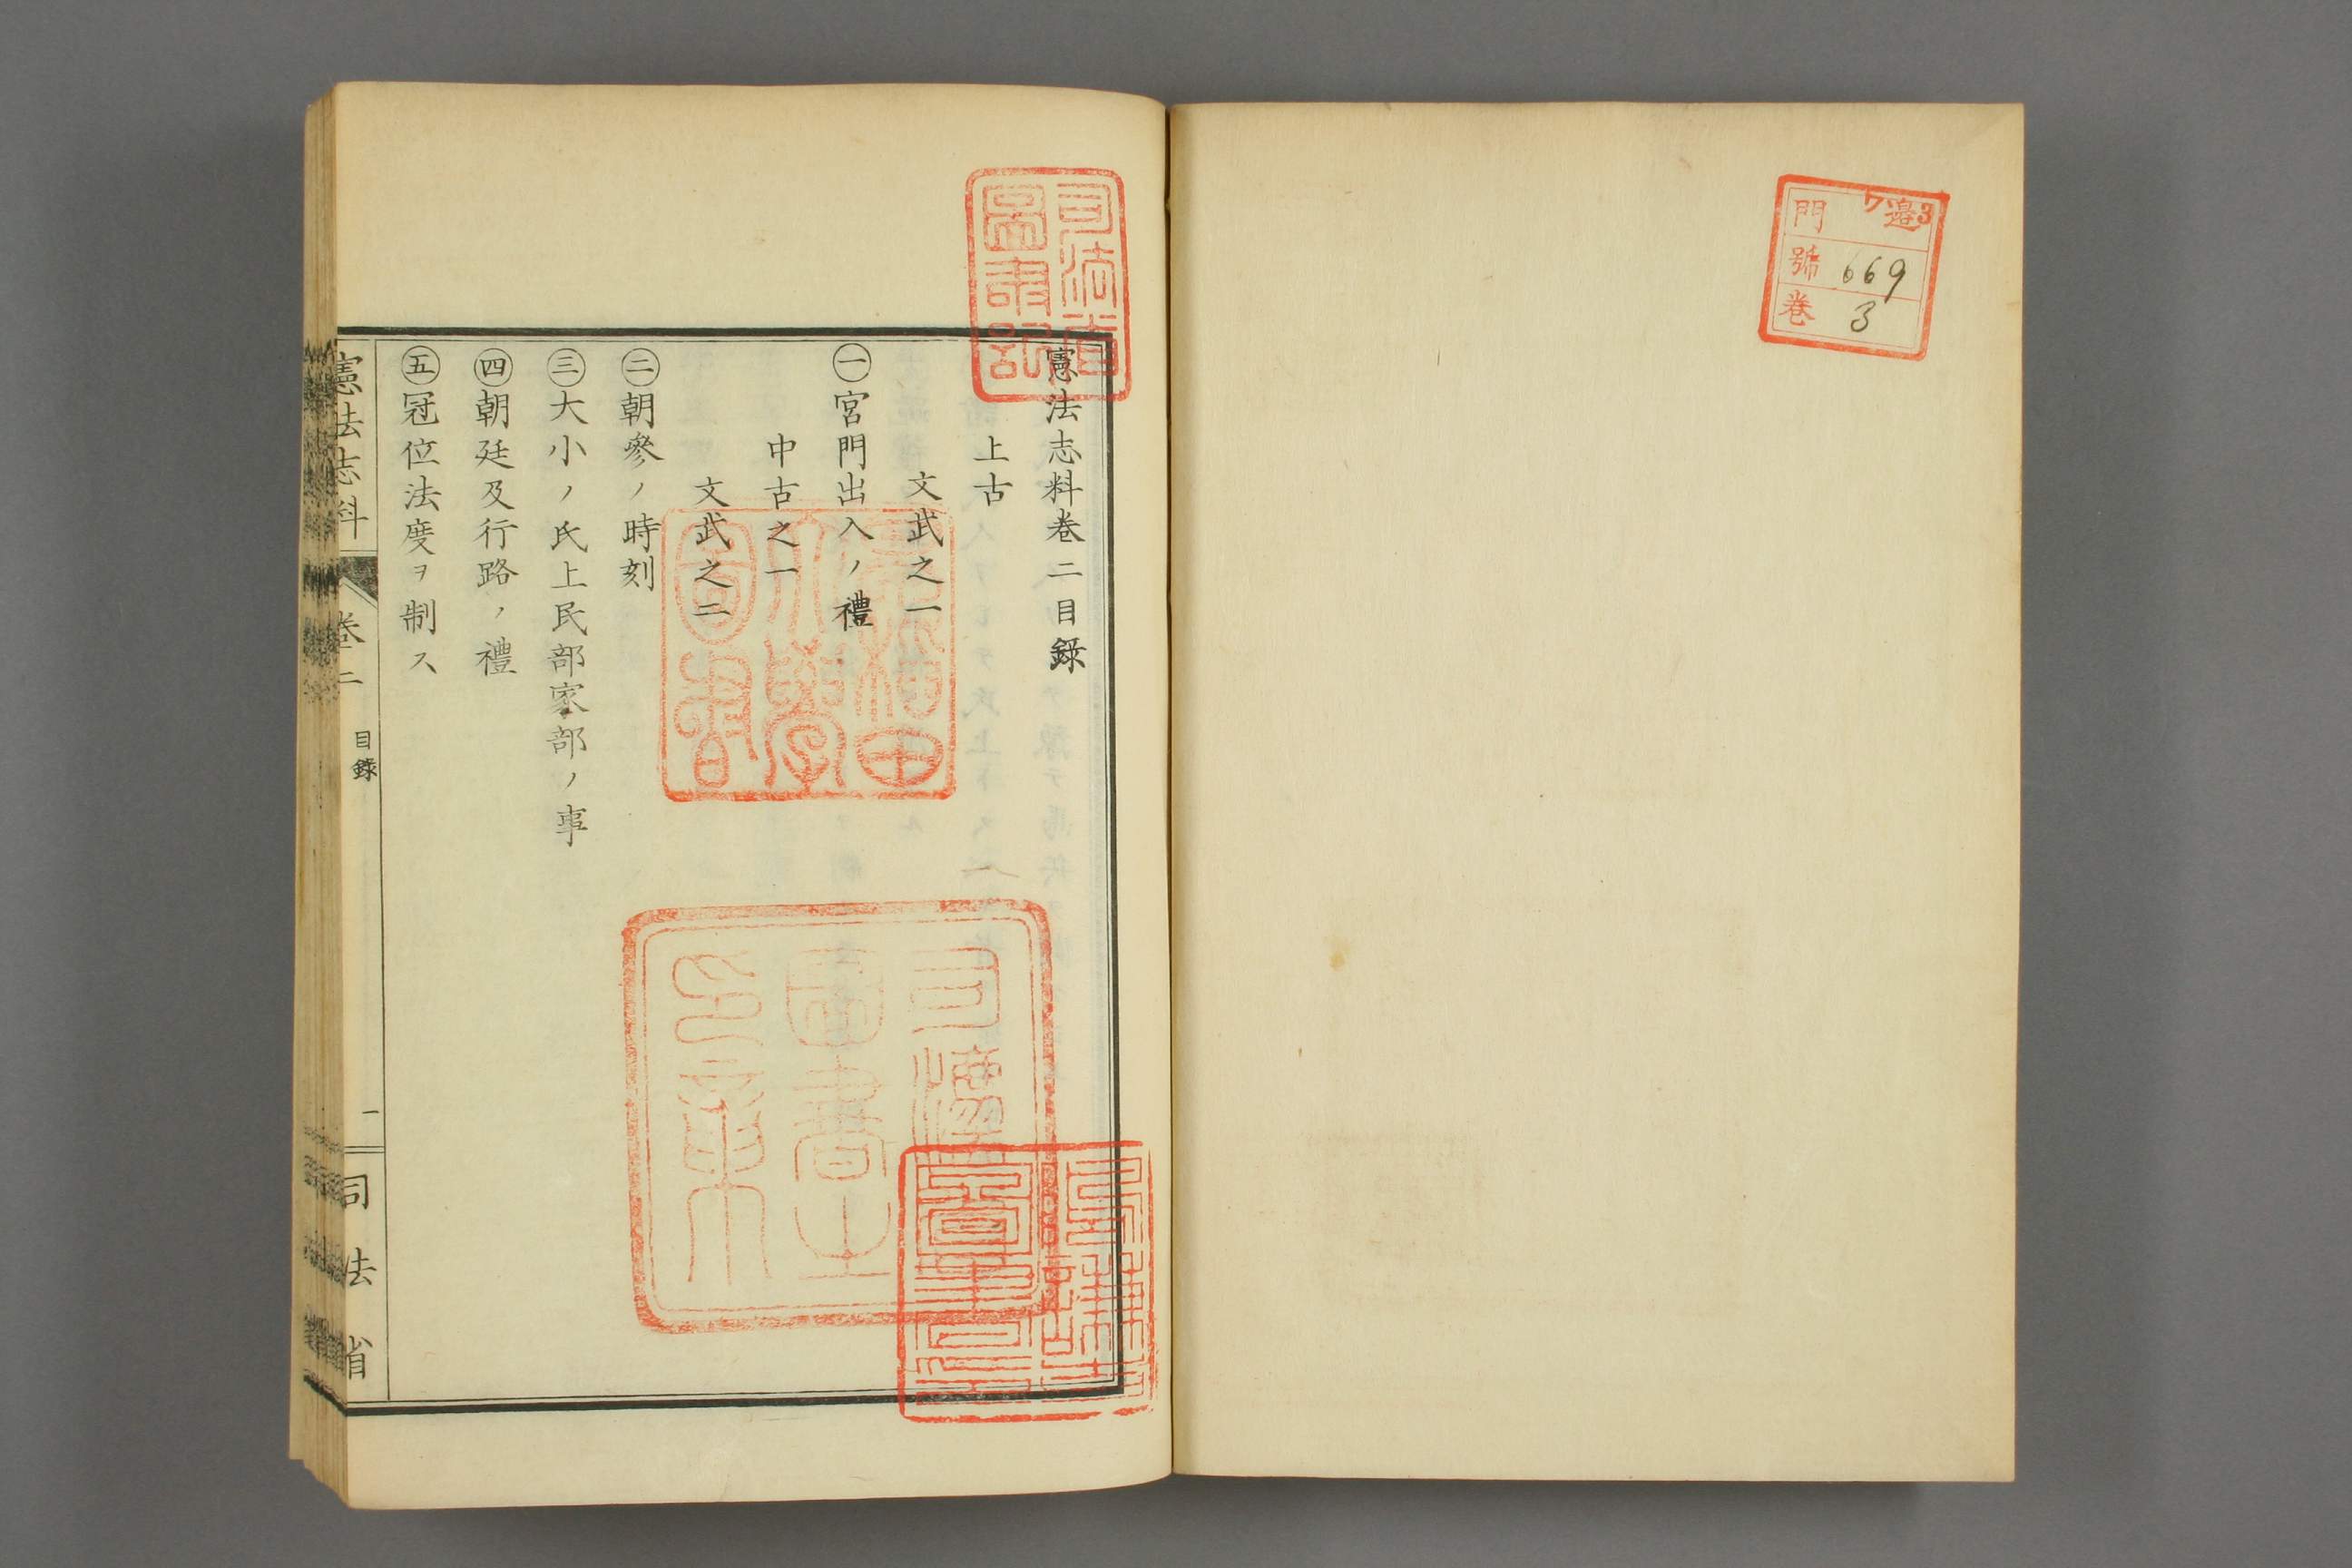 門 ワ邉3
號 669
卷 3
司法省
圖書記
憲法志料卷二目錄
上古
文武之一
㊀宮門出入ノ禮
中古之一
文武之二
㊁朝參ノ時刻
㊂大小ノ氏上民部家部ノ事
㊃朝廷及行路ノ禮
㊄冠位法度ヲ制ス
早稲田
大學
圖書
憲法志料 卷二 目錄 一 司法省